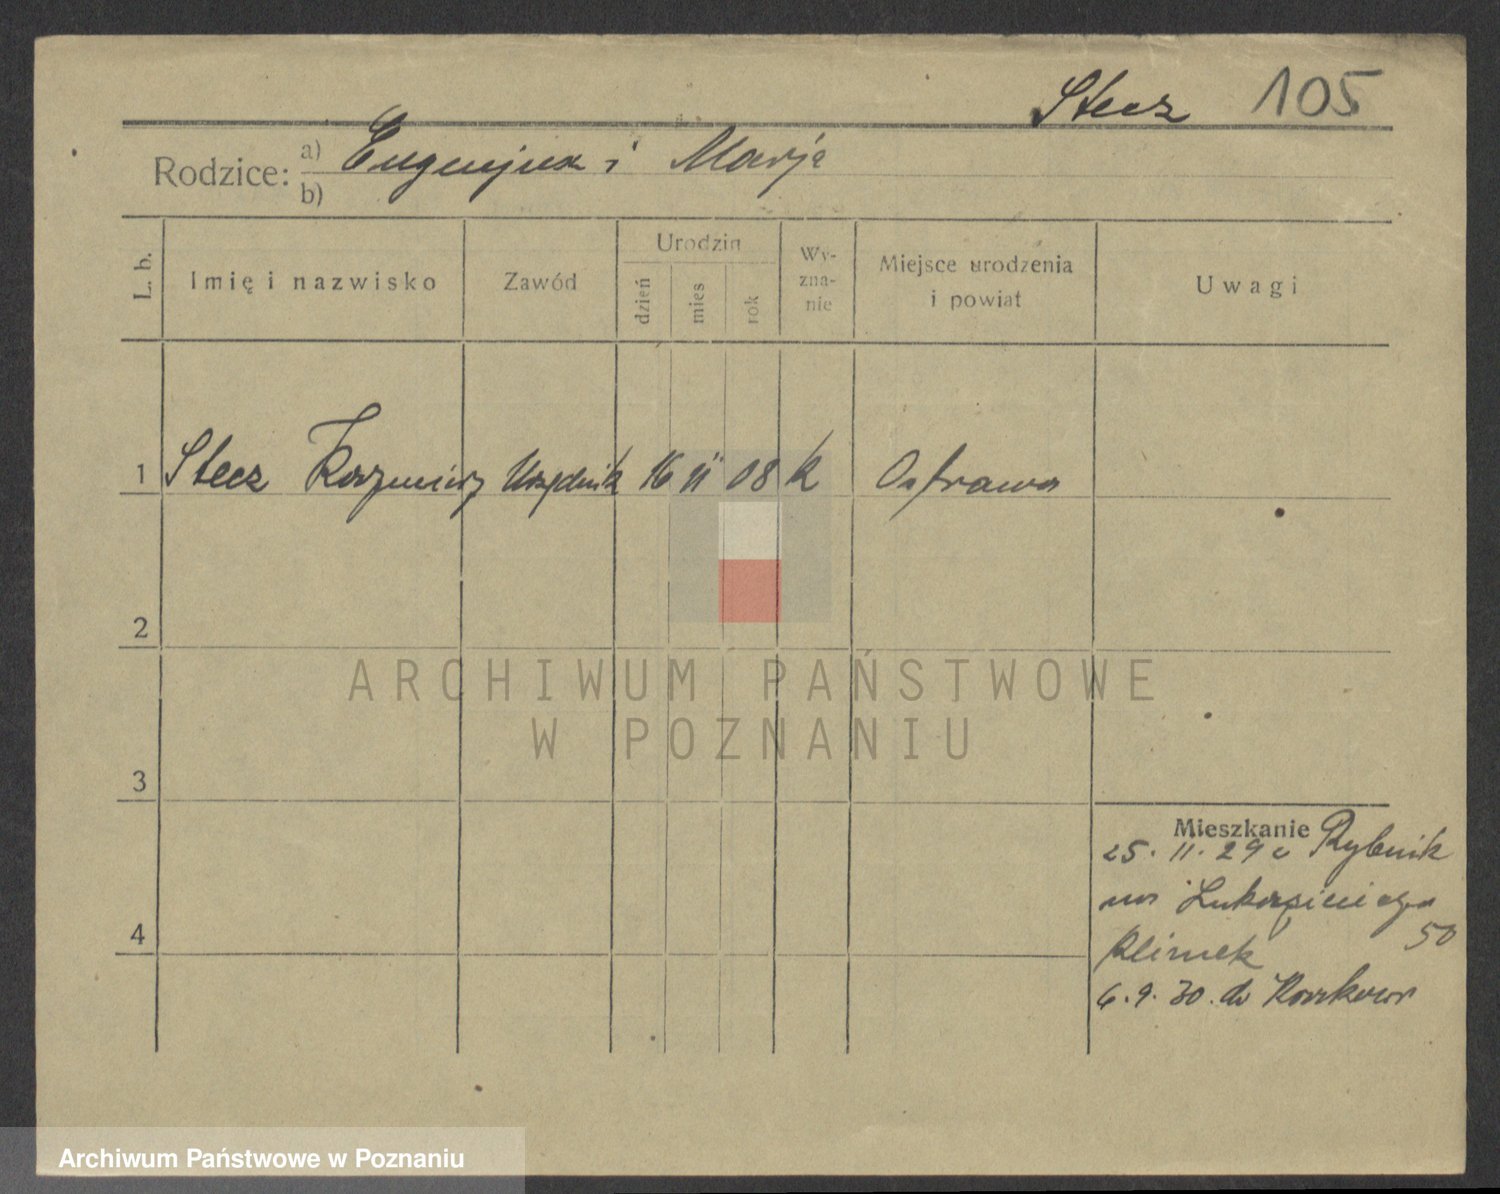 Stecz 105
Rodzice: a) Eugenjusz i Marja
b)
L. b. Imię i nazwisko Zawód Urodzin dzień mies rok Wy-zna-nie Miejsce urodzenia i powiat Uwagi
1 Stecz Kazimierz Urzędnik 16 II 08 K Ostrawa
2
ARCHIWUM PAŃSTWOWE
W POZNANIU
3
Mieszkanie
25. 11. 29 Rybnik
4
50
Klimek
6. 9. 30. do
Archiwum Państwowe w Poznaniu